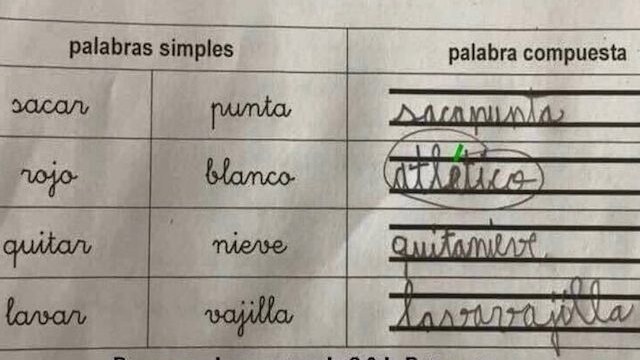 palabras simples palabra compuesta
sacar punta sacapunta
rojo blanco atlético
quitar nieve quitanieve
lavar vajilla lavavajilla